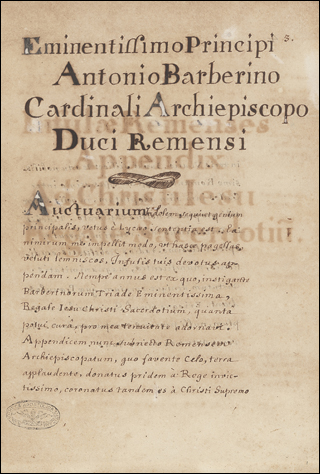 3.
Eminentissimo Principi
Antonio Barberino
Cardinali Archiepiscopo
Duci Remensi
Auctuarium dolere,
principalis, vetus è Lycæo sententia est. Ea
nimirum me impellit modo, ut hasce pagellas,
veluti lemniscos, Infulis tuis devotus ap-
pendam. Nempè annus est ex quo, instigante
Barberinorum Triade Eminentissima,
Regale Iesu Christi Sacerdotium, quanta
potui cura, pro mea tenuitate adornavi.
Appendicem nunc subnecto Remensem
Archiepiscopatum, quo favente Cœlo, terra
applaudente, donatus pridem à Rege invic-
tissimo, coronatus tandem es à Christi Supremo